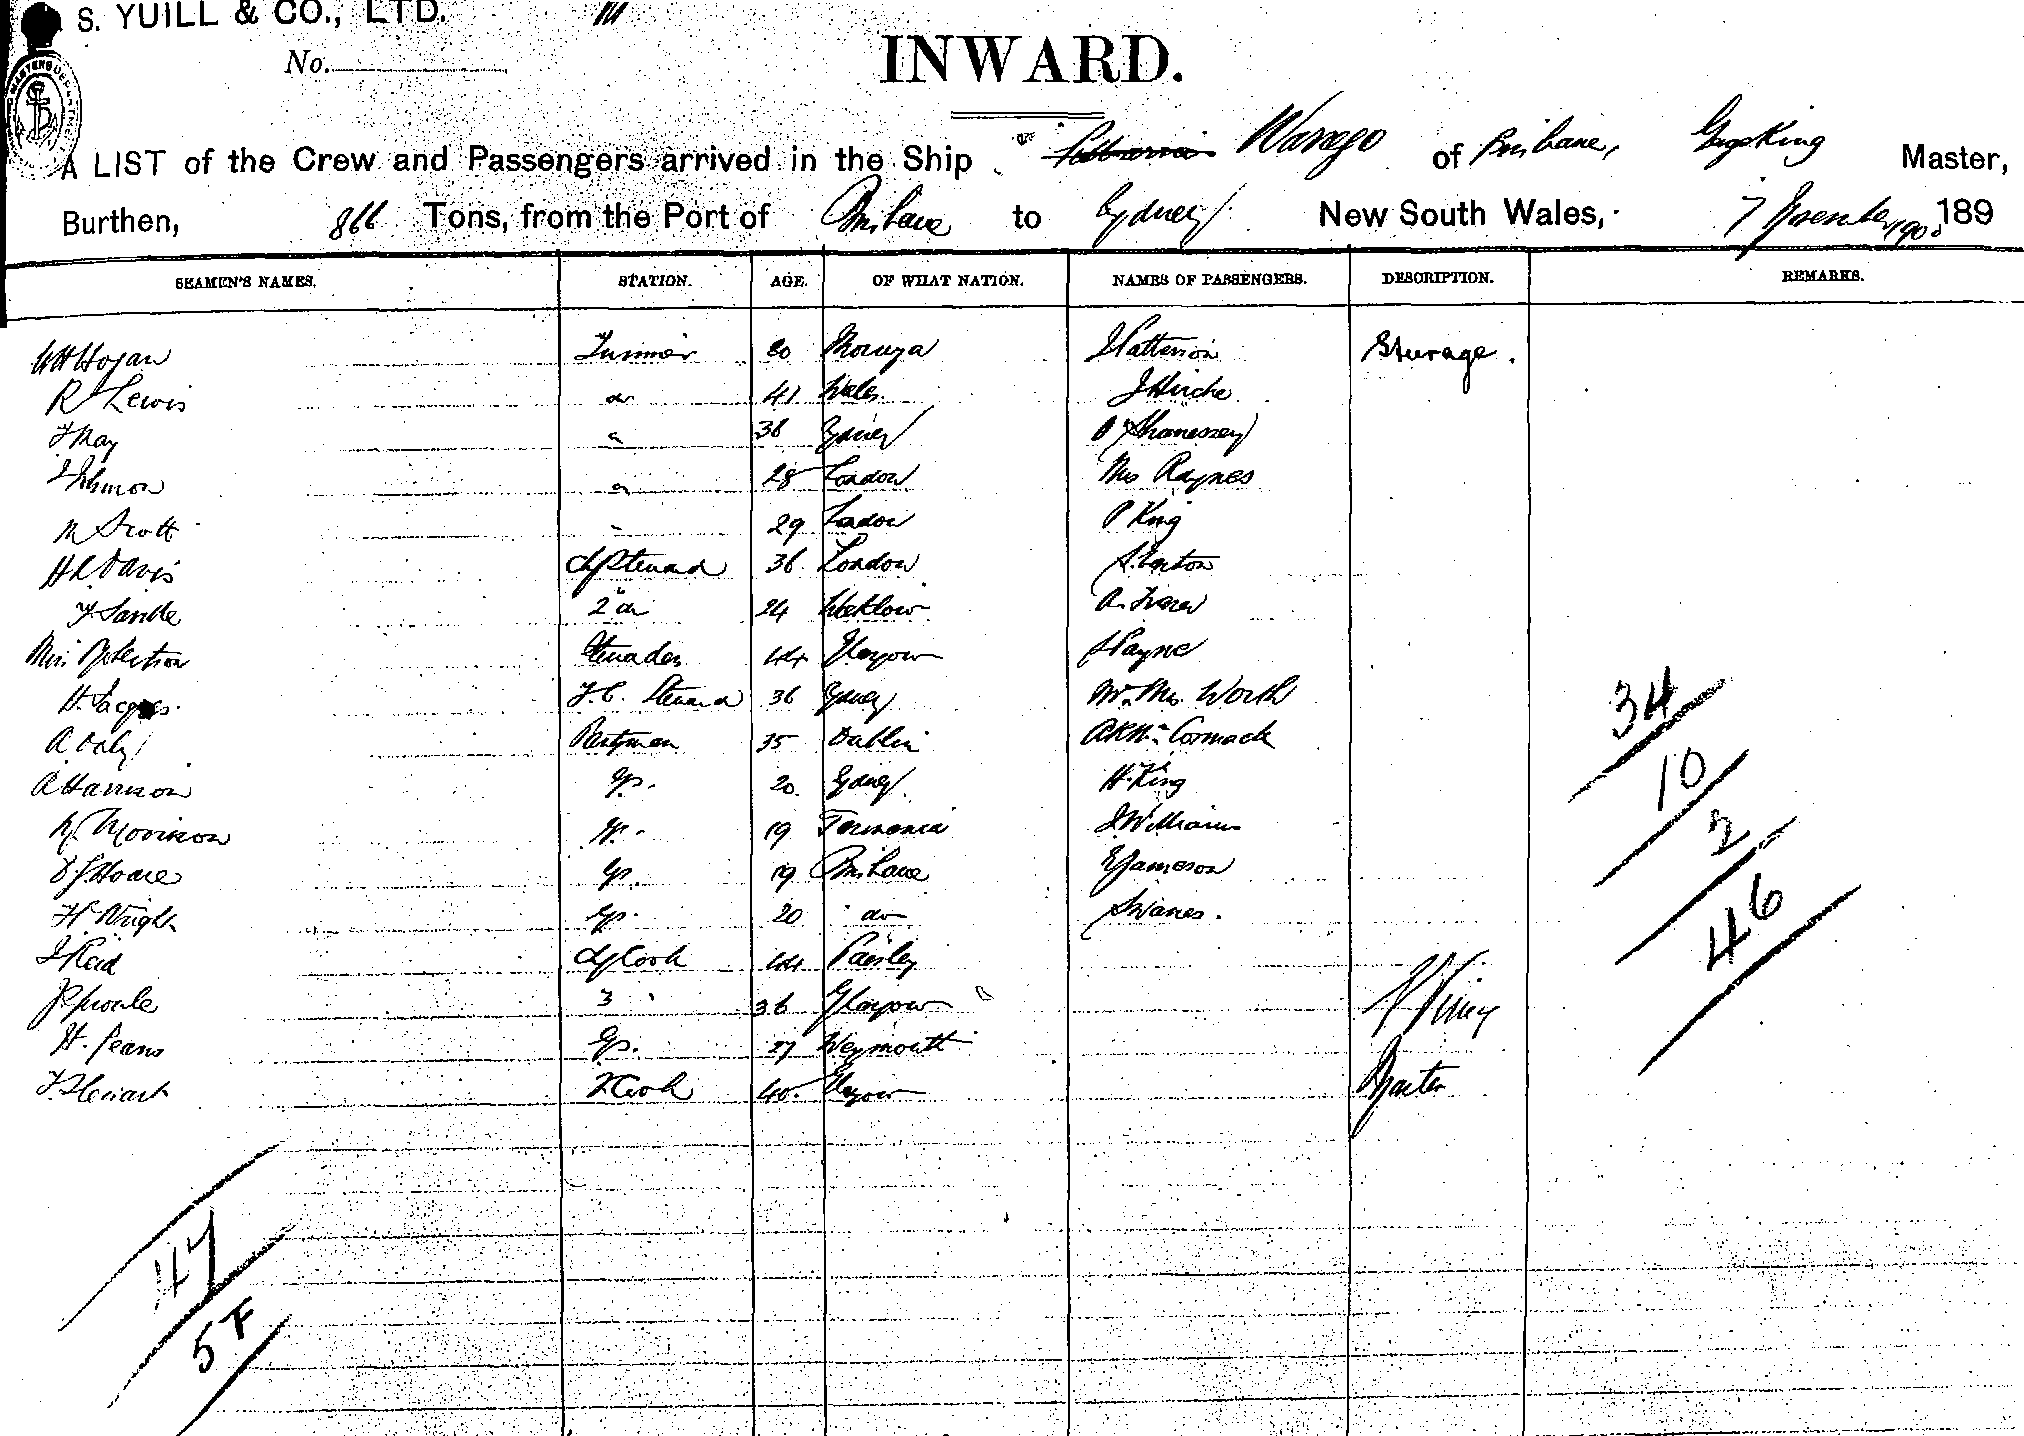 S. YUILL & CO., LTD.
No.
INWARD.
A LIST of the Crew and Passengers arrived in the Ship Warrego of Brisbane, Master,
Burthen, 866 Tons, from the Port of Brisbane to Sydney New South Wales, 7 November 190 189
SEAMEN'S NAMES. STATION. AGE. OF WHAT NATION. NAMES OF PASSENGERS. DESCRIPTION. REMARKS.
WH Hogan 30 Moruya J Patterson Steerage.
R Lewis do 41 Wales J Hirche
F May 36 Sydney O'Shanessey
28 London Mrs Raynes
M Scott 29 London P King
H L Davis Steward 36 London
2 do 24 Wicklow A. Fraser
Robertson 44 Glasgow J Payne
H. Jacques F.C. Steward 36 Sydney Mr. Mrs. Worth
A Daly Pantryman 35 Dublin McCormack
A Harrison 20 Sydney H. King
Morrison 19 Tasmania J Williams
Hoare 19 Brisbane E Jameson
H. Wright 20 do
J Reid Cook 44 Paisley
J Sproule 3 " 36 Glasgow
H. Jeans 27 Weymouth
F. Stewart Cook 40 Glasgow
34
10
2
46
47
5 F